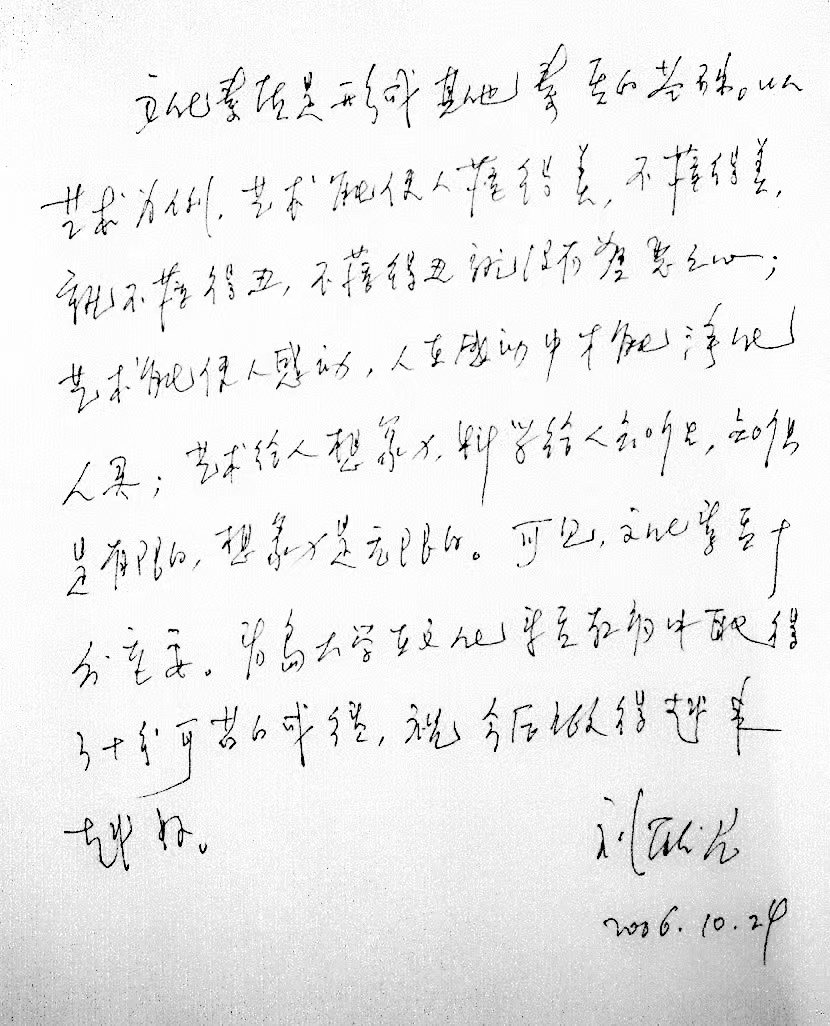 文化素质是形成其他素质的基础。以
艺术为例，艺术能使人懂得美，不懂得美，
就不懂得丑，不懂得丑就没有羞恶之心；
艺术能使人感动，人在感动中才能净化
人灵；艺术给人想象力，科学给人知识，知识
是有限的，想象力是无限的。可见，文化素质十
分重要。青岛大学在文化素质教育中取得
了十分可喜的成绩，祝今后做得越来
越好。
刘
2006.10.24